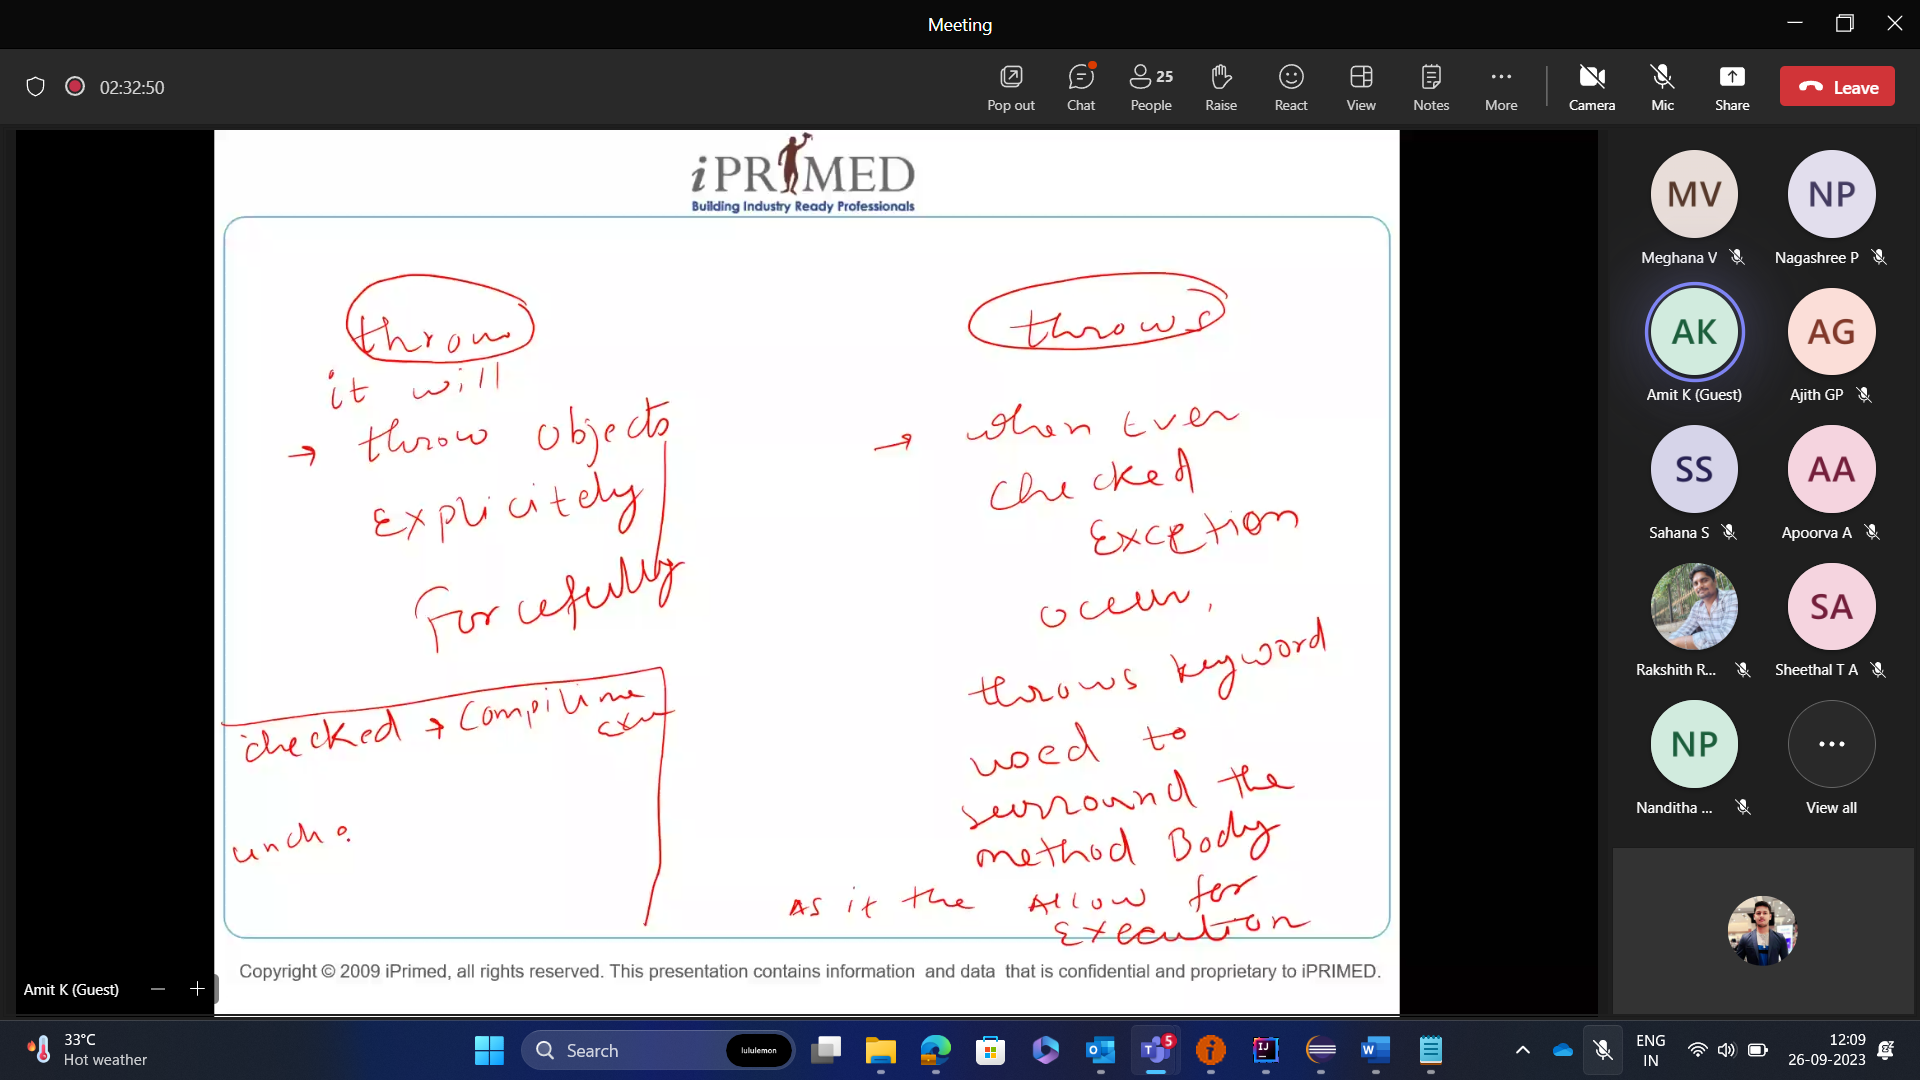 Meeting
02:32:50
Pop out
Chat
25
People
Raise
React
View
Notes
More
Camera
Mic
Share
Leave
iPRIMED
Building Industry Ready Professionals
throw
it will
→ throw objects
Explicitely
Forcefully
checked → compilime
unch
throws
→ when Ever
checked
Exception
occur,
throws keyword
used to
surround the
method Body
As it the Allow for
Execution
Copyright © 2009 iPrimed, all rights reserved. This presentation contains information and data that is confidential and proprietary to iPRIMED.
Amit K (Guest)
MV
Meghana V
NP
Nagashree P
AK
Amit K (Guest)
AG
Ajith GP
SS
Sahana S
AA
Apoorva A
Rakshith R...
SA
Sheethal T A
NP
Nanditha ...
View all
33°C
Hot weather
Search
lululemon
5
ENG
IN
12:09
26-09-2023